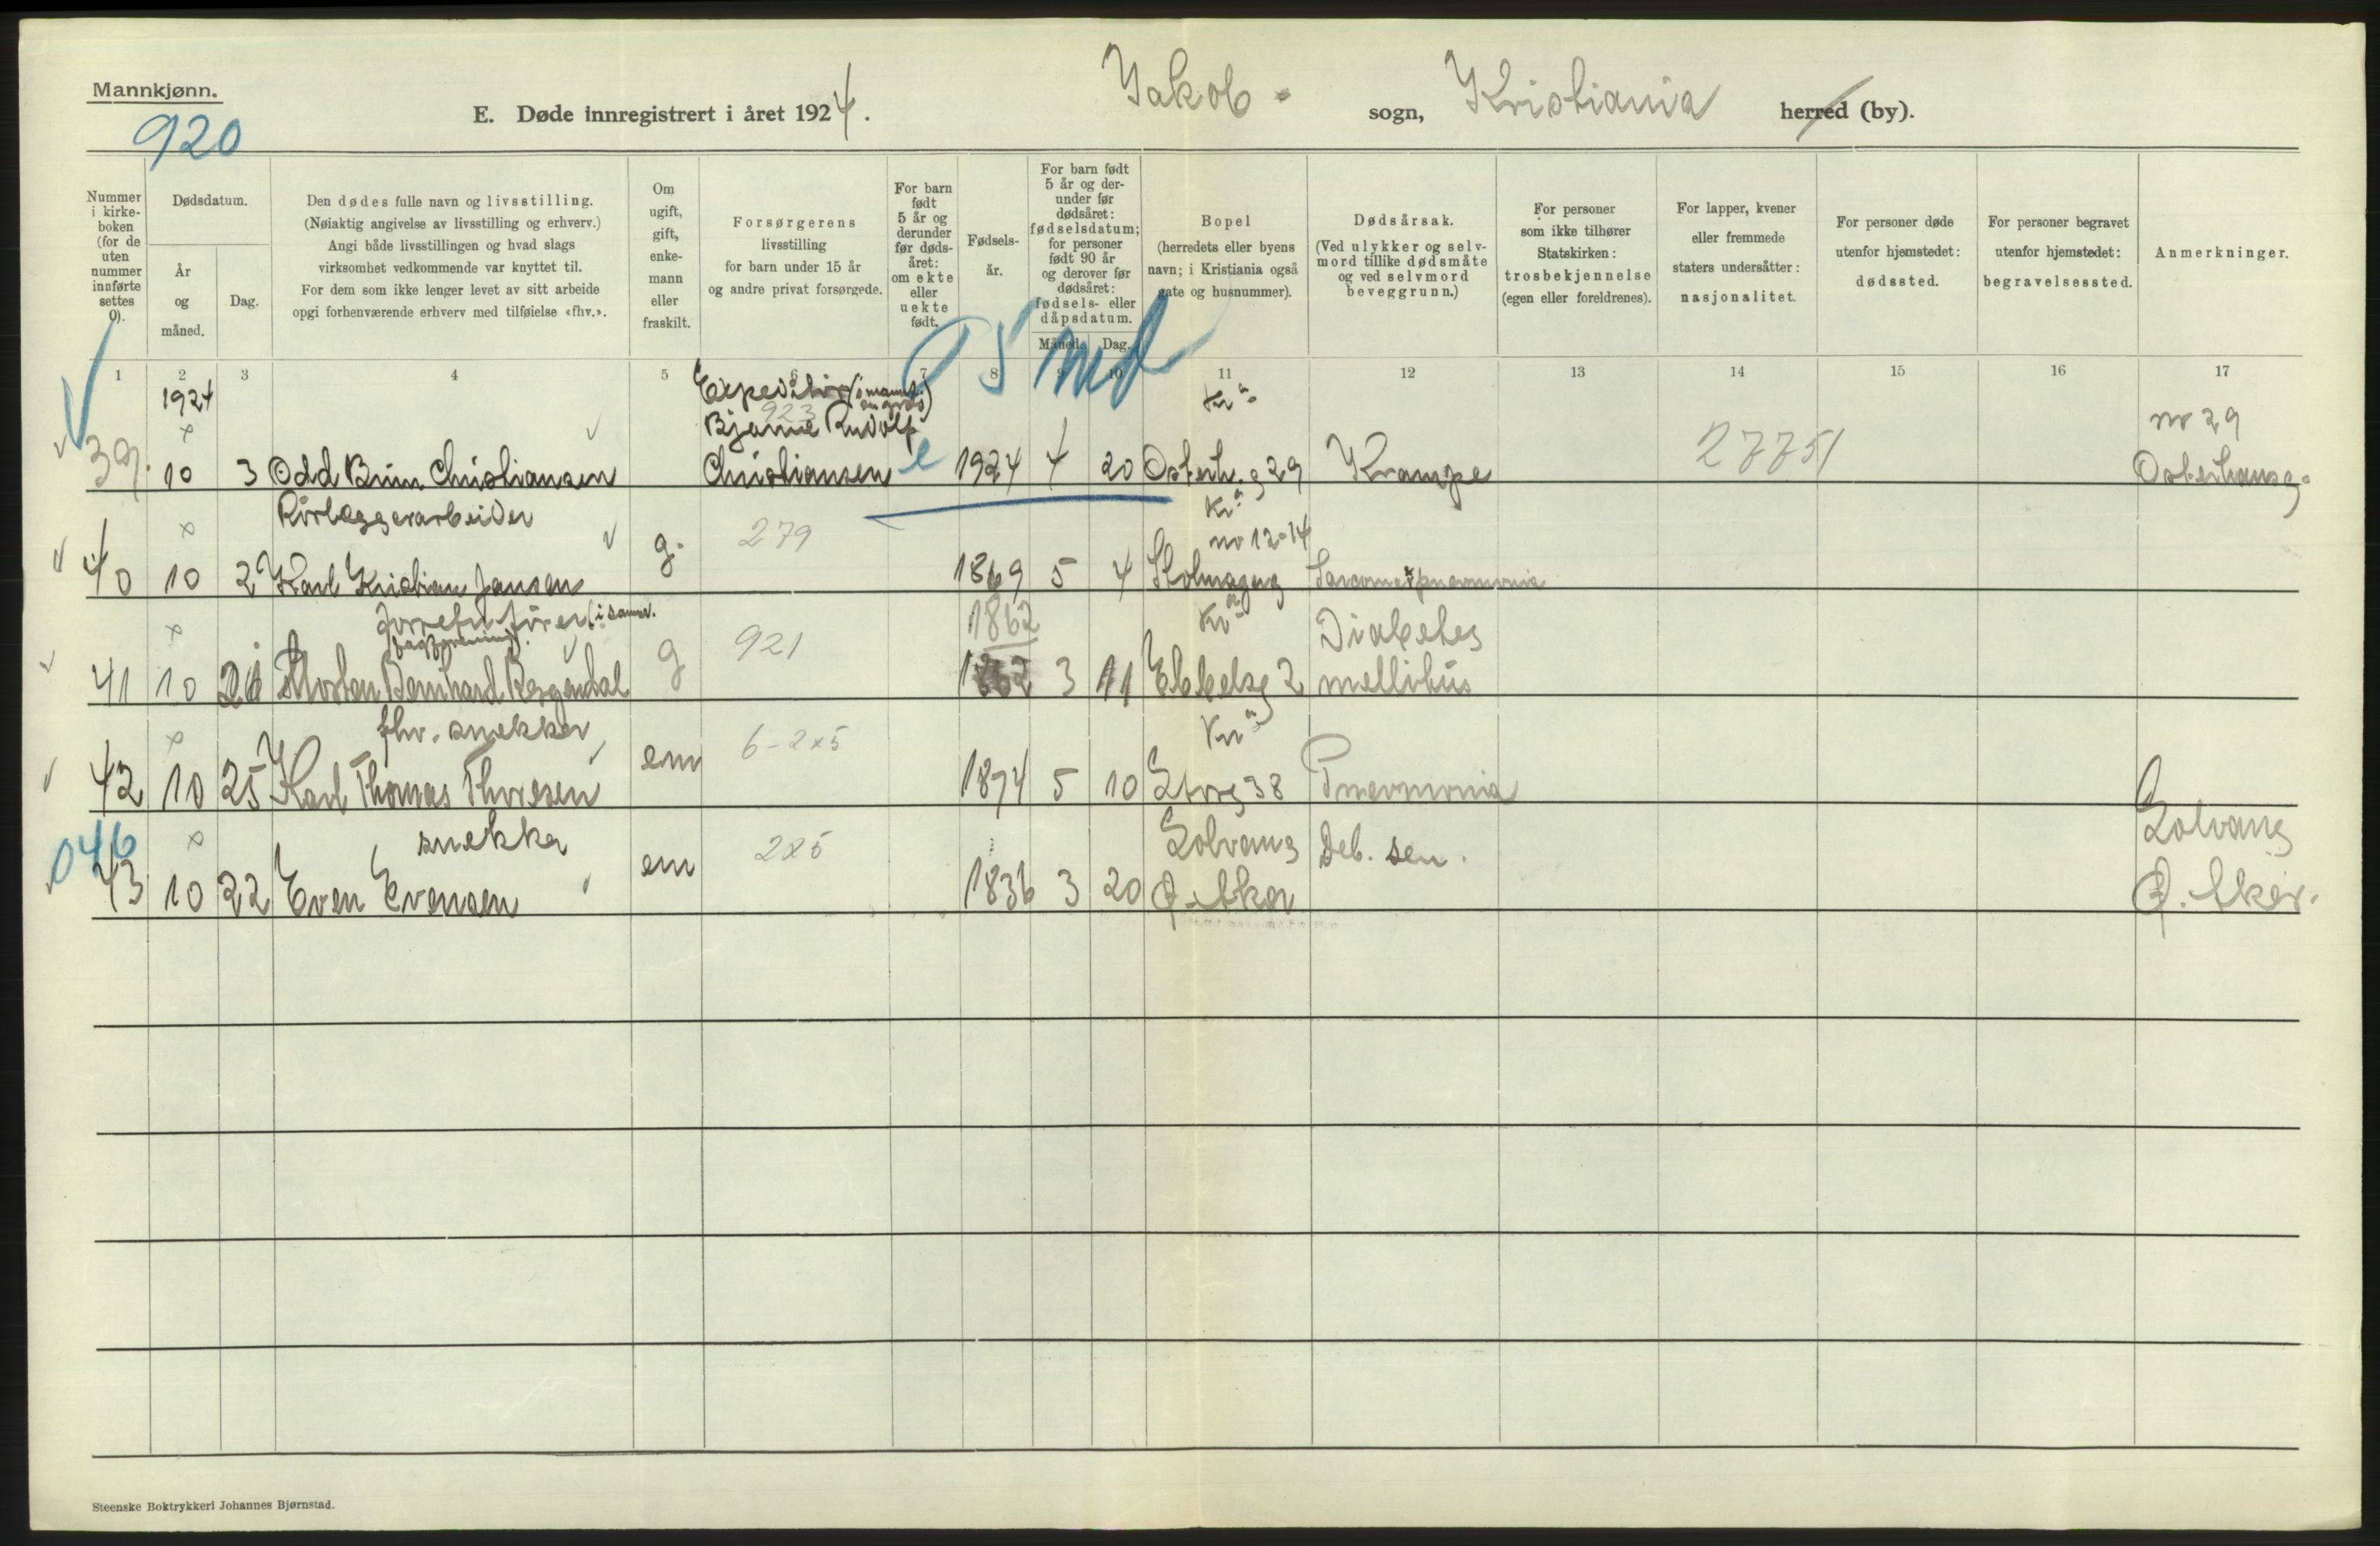 Mannkjønn.
920
E. Døde innregistrert i året 1924. Jakob sogn, Kristiania herred (by).
Nummer i kirkeboken (for de uten nummer innførte settes 0).
Dødsdatum.
År og måned.
Dag.
Den dødes fulle navn og livsstilling.
(Nøiaktig angivelse av livsstilling og erhverv.)
Angi både livsstillingen og hvad slags
virksomhet vedkommende var knyttet til.
For dem som ikke lenger levet av sitt arbeide
opgi forhenværende erhverv med tilføielse «fhv.».
Om ugift, gift, enkemann eller fraskilt.
Forsørgerens
livsstilling
for barn under 15 år
og andre privat forsørgede.
For barn født 5 år og derunder før dødsåret: om ekte eller uekte født.
Fødselsår.
For barn født 5 år og derunder før dødsåret: fødselsdatum; for personer født 90 år og derover før dødsåret: fødsels- eller dåpsdatum.
Måned. Dag.
Bopel
(herredets eller byens
navn; i Kristiania også
gate og husnummer).
Dødsårsak.
(Ved ulykker og selvmord tillike dødsmåte
og ved selvmord
beveggrunn.)
For personer
som ikke tilhører
Statskirken:
trosbekjennelse
(egen eller foreldrenes).
For lapper, kvener
eller fremmede
staters undersåtter:
nasjonalitet.
For personer døde
utenfor hjemstedet:
dødssted.
For personer begravet
utenfor hjemstedet:
begravelsessted.
Anmerkninger.
5 md
1 2 3 4 5 6 7 8 9 10 11 12 13 14 15 16 17
1924 Expeditør (i manuf. en gros) Kr.a
x 923 Bjarne Rudolf nr 29
39. 10 3 Odd Brun Christiansen Christiansen e 1924 4 20 Osterh.g 29 Krampe 27751 Osterhausg.
Rørleggerarbeider Kr.a
x g. 279 nr 12-14
40 10 2 Karl Kristian Jansen 1869 5 4 Stolmagerg pneumonia
Forretn.fører (i samme. 1862 Kr.a Diabetes
x g 921
41 10 Bernhard Bergendal 1862 3 11 Ebbelsg 2 mellitus
fhv. snekker Kr.a
x em 6-2x5
42 10 25 Karl Thomas Thoresen 1874 5 10 Storg 38 Pneumonia
046 x snekker em 2x5 Solvang Deb. sen. Solvang
43 10 22 Even Evensen 1836 3 20 Ø. Aker Ø. Aker.
Steenske Boktrykkeri Johannes Bjørnstad.